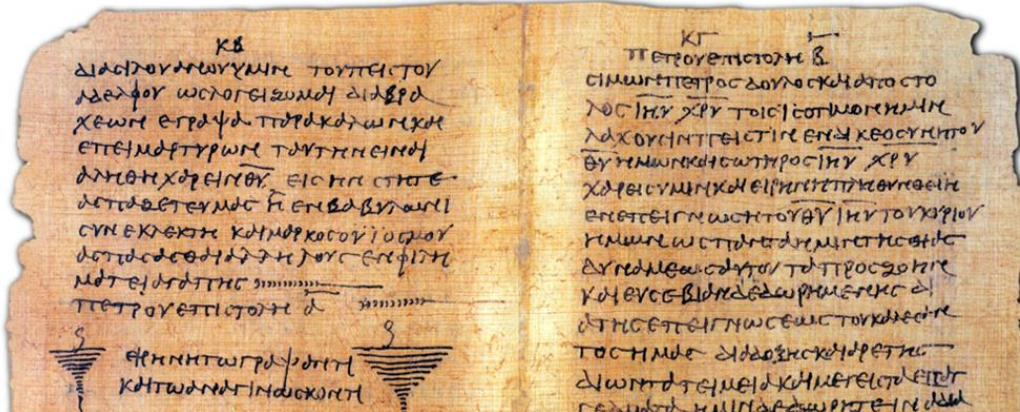 ΚΒ
ΔΙΑ ϹΙΛΟΥΑΝΟΥ ΥΜΙΝ ΤΟΥ ΠΕΙϹΤΟΥ
ΑΔΕΛΦΟΥ ΩϹ ΛΟΓΕΙΖΟΜΑΙ ΔΙΑ ΒΡΑ
ΧΕΩΝ ΕΓΡΑΨΑ ΠΑΡΑΚΑΛΩΝ ΚΑΙ
ΕΠΕΙΜΑΡΤΥΡΩΝ ΤΑΥΤΗΝ ΕΙΝΑΙ
ΑΛΗΘΗ ΧΑΡΕΙΝ Θ̅Υ̅ ΕΙϹ ΗΝ ϹΤΗΤΕ
ΑϹΠΑΖΕΤΕ ΥΜΑϹ Η ΕΝ ΒΑΒΥΛΩΝΙ
ϹΥΝΕΚΛΕΚΤΗ ΚΑΙ ΜΑΡΚΟϹ Ο ΥΙΟϹ ΜΟΥ
ΑϹΠΑϹΑϹΘΑΙ ΑΛΛΗΛΟΥϹ ΕΝ ΦΙΛΗ
ΜΑΤΕΙ ΑΓΑΠΗϹ
ΠΕΤΡΟΥ ΕΠΙϹΤΟΛΗ Α̅
ΕΙΡΗΝΗ ΤΩ ΓΡΑΨΑΝΤΙ
ΚΑΙ ΤΩ ΑΝΑΓΙΝΩϹΚΟΝΤΙ
ΚΓ
ΠΕΤΡΟΥ ΕΠΙϹΤΟΛΗ Β̅
ϹΙΜΩΝ ΠΕΤΡΟϹ ΔΟΥΛΟϹ ΚΑΙ ΑΠΟϹΤΟ
ΛΟϹ Ι̅Η̅Υ̅ Χ̅Ρ̅Υ̅ ΤΟΙϹ ΙϹΟΤΙΜΟΝ ΗΜΙΝ
ΛΑΧΟΥϹΙΝ ΠΕΙϹΤΙΝ ΕΝ ΔΙΚΕΟϹΥΝΗ ΤΟΥ
Θ̅Υ̅ ΗΜΩΝ ΚΑΙ ϹΩΤΗΡΟϹ Ι̅Η̅Υ̅ Χ̅Ρ̅Υ̅
ΧΑΡΕΙϹ ΥΜΙΝ ΚΑΙ ΕΙΡΗΝΗ ΠΛΗΘΥΝΘΕΙΗ
ΕΝ ΕΠΕΙΓΝΩϹΗ ΤΟΥ Θ̅Υ̅ Ι̅Η̅Υ̅ ΤΟΥ ΚΥΡΙΟΥ
ΗΜΩΝ ΩϹ ΠΑΝΤΑ ΗΜΙΝ ΤΗϹ ΘΙΑϹ
ΔΥΝΑΜΕΩϹ ΑΥΤΟΥ ΤΑ ΠΡΟϹ ΖΩΗΝ
ΚΑΙ ΕΥϹϹΒΙΑΝ ΔΕΔΩΡΗΜΕΝΗϹ ΔΙ
Α ΤΗϹ ΕΠΕΙΓΝΩϹΕΩϹ ΤΟΥ ΚΑΛΕϹΑΝ
ΤΟϹ ΗΜΑϹ ΔΙΑ ΔΟΞΗϹ ΚΑΙ ΑΡΕΤΗϹ
ΔΙ ΩΝ ΤΑ ΤΕΙΜΕΙΑ ΚΑΙ ΜΕΓΕΙϹΤΑ